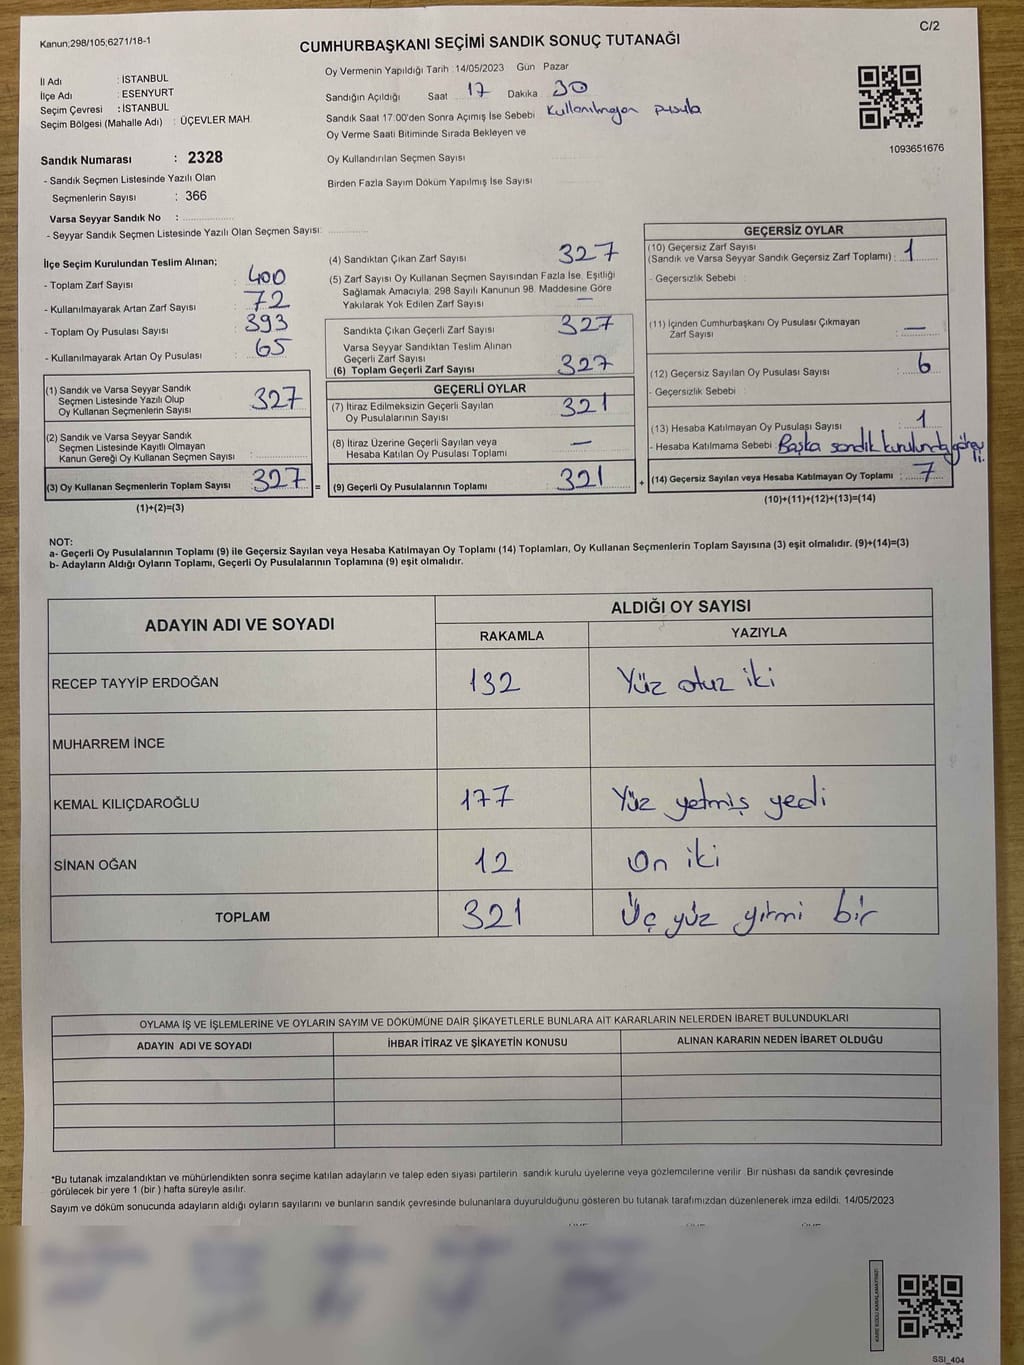 Kanun;298/105;6271/18-1
C/2
CUMHURBAŞKANI SEÇİMİ SANDIK SONUÇ TUTANAĞI
İl Adı : İSTANBUL
İlçe Adı : ESENYURT
Seçim Çevresi : İSTANBUL
Seçim Bölgesi (Mahalle Adı) : ÜÇEVLER MAH
Sandık Numarası : 2328
- Sandık Seçmen Listesinde Yazılı Olan
Seçmenlerin Sayısı : 366
Varsa Seyyar Sandık No :
- Seyyar Sandık Seçmen Listesinde Yazılı Olan Seçmen Sayısı:
Oy Vermenin Yapıldığı Tarih : 14/05/2023 Gün Pazar
Sandığın Açıldığı Saat 17 Dakika 30
Sandık Saat 17:00'den Sonra Açımış İse Sebebi Kullanılmayan pusula
Oy Verme Saati Bitiminde Sırada Bekleyen ve
Oy Kullandırılan Seçmen Sayısı
Birden Fazla Sayım Döküm Yapılmış İse Sayısı
1093651676
İlçe Seçim Kurulundan Teslim Alınan;
- Toplam Zarf Sayısı : 400
- Kullanılmayarak Artan Zarf Sayısı : 72
- Toplam Oy Pusulası Sayısı : 393
- Kullanılmayarak Artan Oy Pusulası : 65
(1) Sandık ve Varsa Seyyar Sandık
Seçmen Listesinde Yazılı Olup
Oy Kullanan Seçmenlerin Sayısı 327
(2) Sandık ve Varsa Seyyar Sandık
Seçmen Listesinde Kayıtlı Olmayan
Kanun Gereği Oy Kullanan Seçmen Sayısı :
(3) Oy Kullanan Seçmenlerin Toplam Sayısı 327 =
(1)+(2)=(3)
(4) Sandıktan Çıkan Zarf Sayısı 327
(5) Zarf Sayısı Oy Kullanan Seçmen Sayısından Fazla İse, Eşitliği
Sağlamak Amacıyla; 298 Sayılı Kanunun 98. Maddesine Göre
Yakılarak Yok Edilen Zarf Sayısı —
Sandıkta Çıkan Geçerli Zarf Sayısı 327
Varsa Seyyar Sandıktan Teslim Alınan
Geçerli Zarf Sayısı
(6) Toplam Geçerli Zarf Sayısı 327
GEÇERLİ OYLAR
(7) İtiraz Edilmeksizin Geçerli Sayılan
Oy Pusulalarının Sayısı 321
(8) İtiraz Üzerine Geçerli Sayılan veya
Hesaba Katılan Oy Pusulası Toplamı —
(9) Geçerli Oy Pusulalarının Toplamı 321 +
GEÇERSİZ OYLAR
(10) Geçersiz Zarf Sayısı
(Sandık ve Varsa Seyyar Sandık Geçersiz Zarf Toplamı) : 1
- Geçersizlik Sebebi :
(11) İçinden Cumhurbaşkanı Oy Pusulası Çıkmayan
Zarf Sayısı : —
(12) Geçersiz Sayılan Oy Pusulası Sayısı : 6
- Geçersizlik Sebebi :
(13) Hesaba Katılmayan Oy Pusulası Sayısı : 1
- Hesaba Katılmama Sebebi : Başka sandık kurulunda görevli.
(14) Geçersiz Sayılan veya Hesaba Katılmayan Oy Toplamı : 7
(10)+(11)+(12)+(13)=(14)
NOT:
a- Geçerli Oy Pusulalarının Toplamı (9) ile Geçersiz Sayılan veya Hesaba Katılmayan Oy Toplamı (14) Toplamları, Oy Kullanan Seçmenlerin Toplam Sayısına (3) eşit olmalıdır. (9)+(14)=(3)
b- Adayların Aldığı Oyların Toplamı, Geçerli Oy Pusulalarının Toplamına (9) eşit olmalıdır.
ADAYIN ADI VE SOYADI
ALDIĞI OY SAYISI
RAKAMLA YAZIYLA
RECEP TAYYİP ERDOĞAN 132 Yüz otuz iki
MUHARREM İNCE
KEMAL KILIÇDAROĞLU 177 Yüz yetmiş yedi
SİNAN OĞAN 12 On iki
TOPLAM 321 Üç yüz yirmi bir
OYLAMA İŞ VE İŞLEMLERİNE VE OYLARIN SAYIM VE DÖKÜMÜNE DAİR ŞİKAYETLERLE BUNLARA AİT KARARLARIN NELERDEN İBARET BULUNDUKLARI
ADAYIN ADI VE SOYADI İHBAR İTİRAZ VE ŞİKAYETİN KONUSU ALINAN KARARIN NEDEN İBARET OLDUĞU
*Bu tutanak imzalandıktan ve mühürlendikten sonra seçime katılan adayların ve talep eden siyasi partilerin sandık kurulu üyelerine veya gözlemcilerine verilir. Bir nüshası da sandık çevresinde
görülecek bir yere 1 (bir) hafta süreyle asılır.
Sayım ve döküm sonucunda adayların aldığı oyların sayılarını ve bunların sandık çevresinde bulunanlara duyurulduğunu gösteren bu tutanak tarafımızdan düzenlenerek imza edildi. 14/05/2023
SSI_404